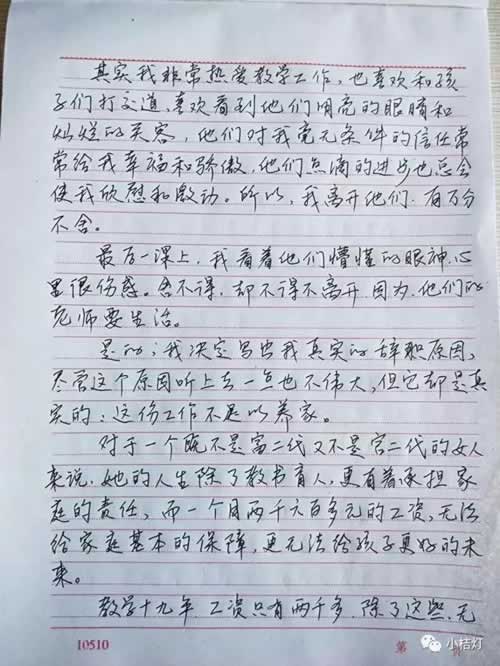 其实我非常热爱教学工作,也喜欢和孩
子们打交道,喜欢看到他们明亮的眼睛和
灿烂的笑容,他们对我毫无条件的信任常
常给我幸福和骄傲,他们点滴的进步也总会
使我欣慰和激动。所以,我离开他们,有万分
不舍。
最后一课上,我看着他们懵懂的眼神,心
里很伤感。舍不得,却不得不离开,因为,他们的
老师要生活。
是的,我决定写出我真实的辞职原因,
尽管这个原因听上去一点也不伟大,但它却是真
实的:这份工作不足以养家。
对于一个既不是富二代又不是官二代的女人
来说,她的人生除了教书育人,更有着承担家
庭的责任,而一个月两千六百多元的工资,无法
给家庭基本的保障,更无法给孩子更好的未
来。
教学十九年,工资只有两千多,除了这些,无
10510
第 页
小桔灯